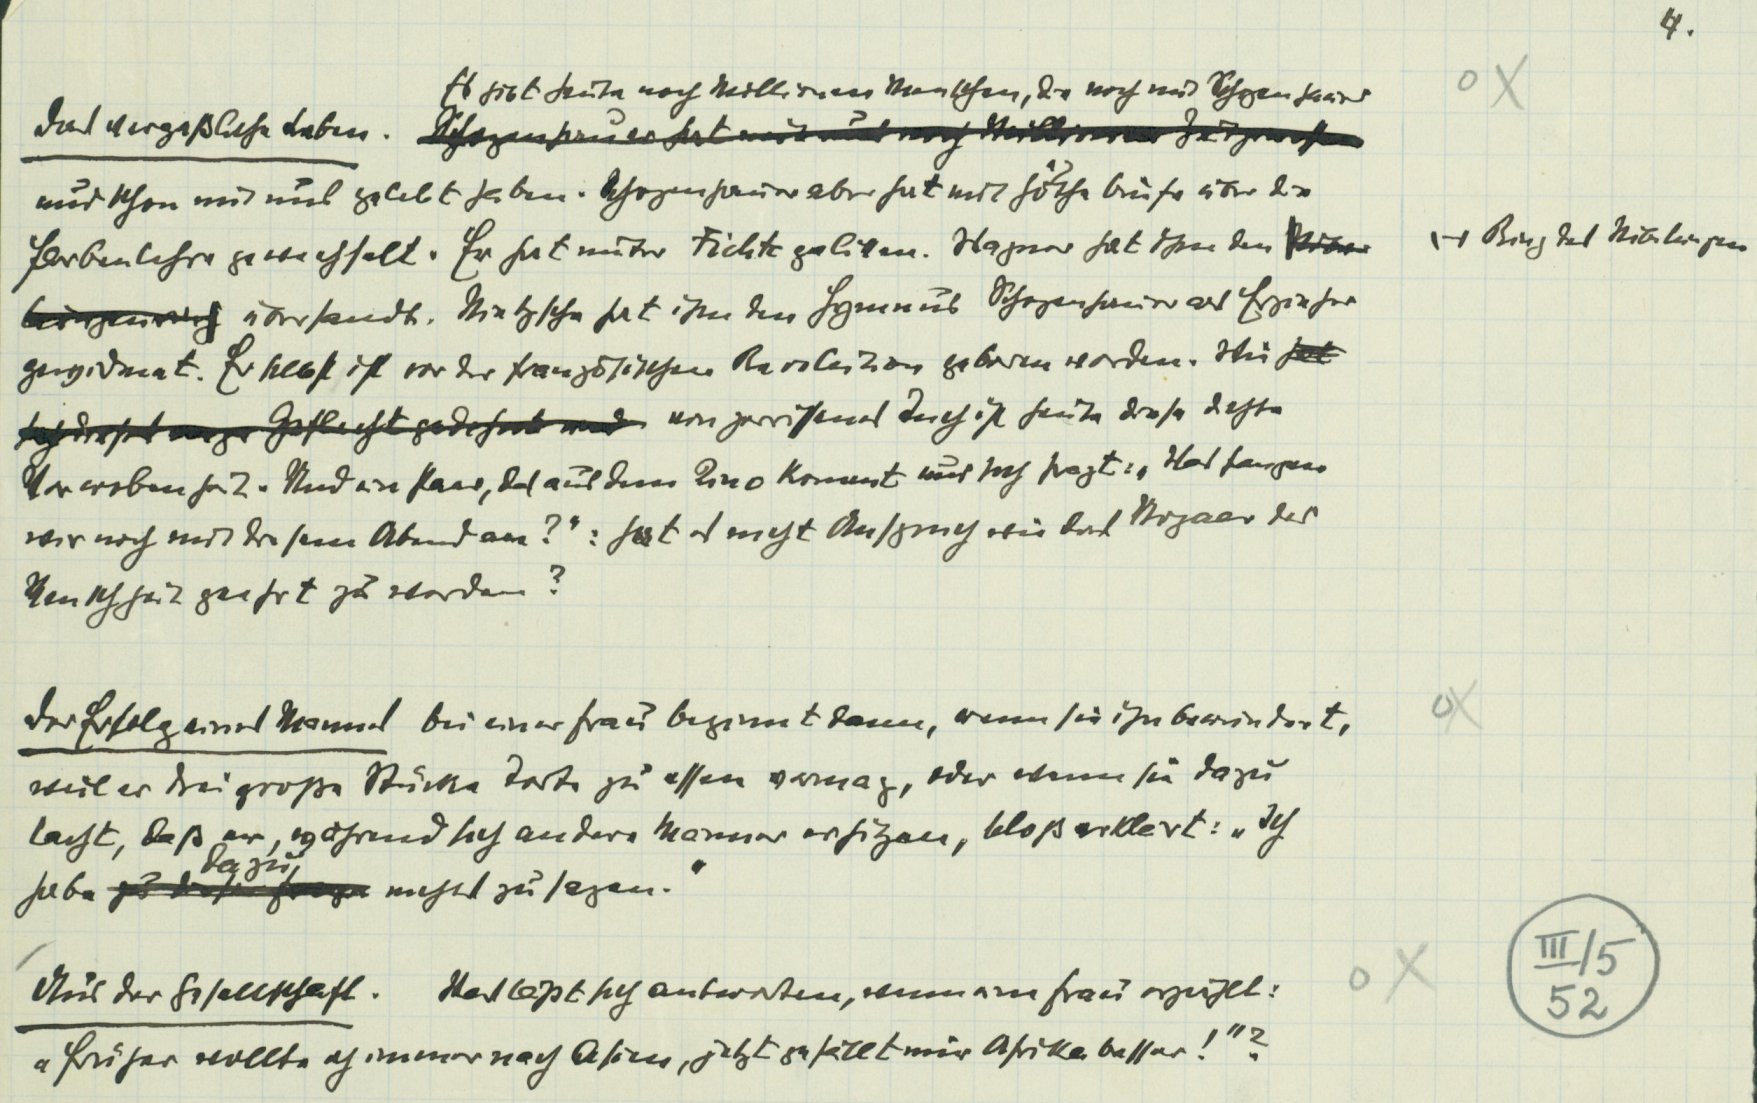 4.
Es gibt heute noch Millionen Menschen, die noch mit Schopenhauer
Das vergeßliche Leben. Schopenhauer hat mit uns noch Millionen Zeitgenossen
und schon mit uns gelebt haben. Schopenhauer aber hat mit Göthe briefe über die
Farbenlehre gewechselt. Er hat unter Fichte gelitten. Wagner hat ihm den
⊢⊣ Ring des Nibelungen
übersandt. Nietzsche hat ihm den Hymnus Schopenhauer als Erzieher
gewidmet. Er selbst ist vor der französischen Revolution geboren worden. Wie hat
sich dieses Geflecht gedehnt und von zerrissenes Tuch ist heute diese dichte
Verwobenheit. Und ein Paar, das aus dem Kino kommt und sich fragt: „Was fangen
wir noch mit diesem Abend an?": hat es nicht Anspruch wie das der
Menschheit geehrt zu werden?
Der Erfolg eines Mannes bei einer Frau beginnt dann, wenn sie ihn bewundert,
weil er drei große Stücke Torte zu essen vermag, oder wenn sie dazu
lacht, daß er, während sich andere Männer erhitzen, bloß erklärt: „Ich
dazu
habe zu dieser Frage nichts zu sagen."
Aus der Gesellschaft. Was läßt sich antworten, wenn eine Frau erzählt:
„Früher wollte ich immer nach Asien, jetzt gefällt mir Afrika besser!"?
o X
o X
o X
III/5
52